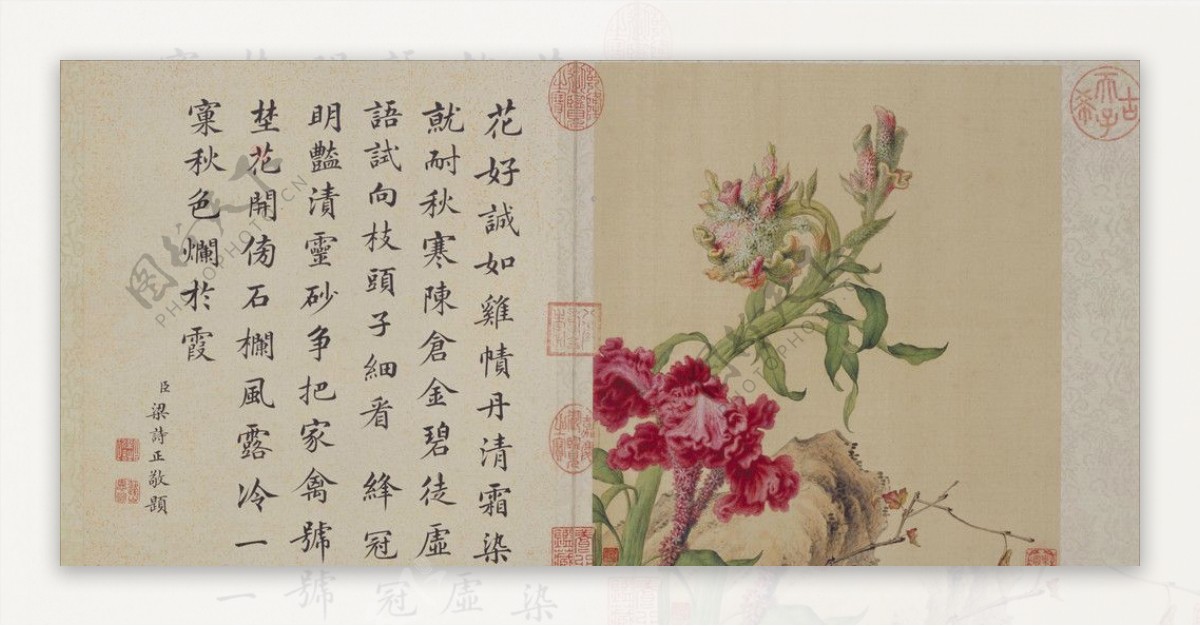 花好誠如雞幘丹清霜染
就耐秋寒陳倉金碧徒虛
語試向枝頭子細看 絳冠
明豔漬靈砂争把家禽號
埜花開傍石欄風露冷一
窠秋色爛於霞
臣梁詩正敬題
古
天子
希
PHOTOPHOTO.CN